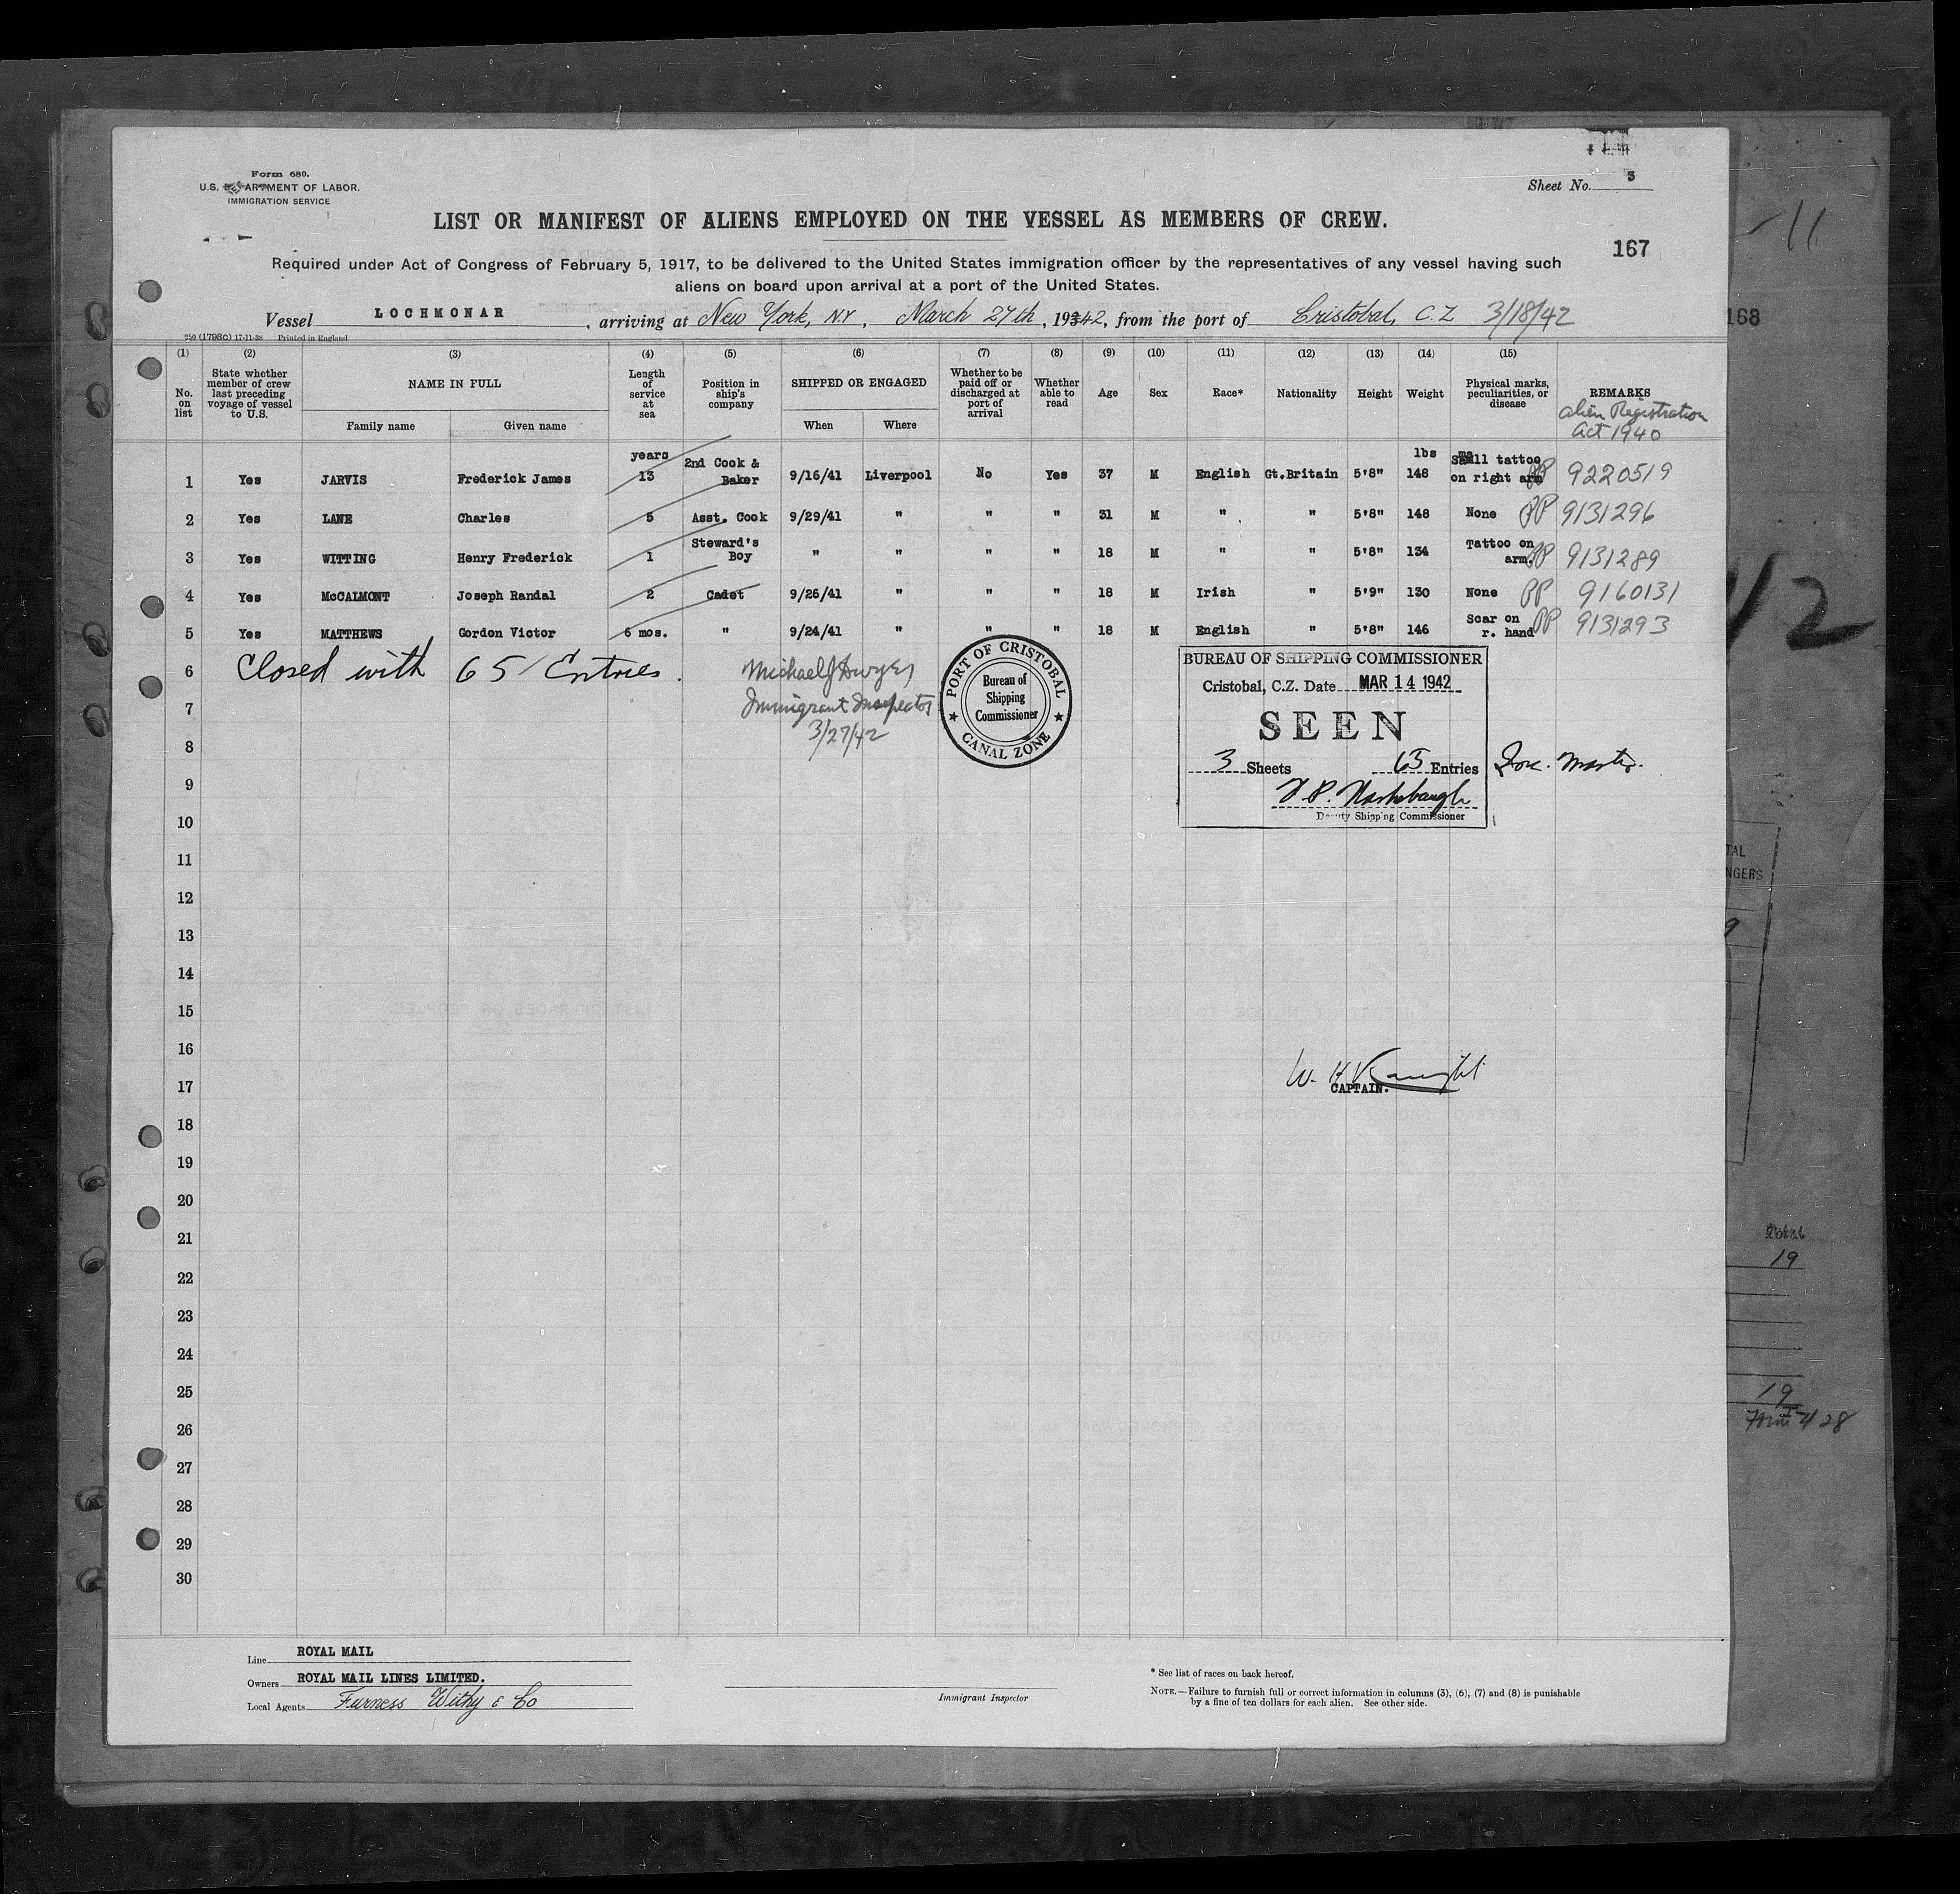 Form 680.
U.S. DEPARTMENT OF LABOR.
IMMIGRATION SERVICE
Sheet No. 3
LIST OR MANIFEST OF ALIENS EMPLOYED ON THE VESSEL AS MEMBERS OF CREW.
167
Required under Act of Congress of February 5, 1917, to be delivered to the United States immigration officer by the representatives of any vessel having such
aliens on board upon arrival at a port of the United States.
Vessel LOCHMONAR, arriving at New York, N.Y., March 27th, 1942, from the port of Cristobal, C.Z 3/18/42
168
250 (1798C) 17-11-38 Printed in England
(1) (2) (3) (4) (5) (6) (7) (8) (9) (10) (11) (12) (13) (14) (15)
No. on list
State whether member of crew last preceding voyage of vessel to U.S.
NAME IN FULL
Family name Given name
Length of service at sea
Position in ship's company
SHIPPED OR ENGAGED
When Where
Whether to be paid off or discharged at port of arrival
Whether able to read
Age Sex Race* Nationality Height Weight
Physical marks, peculiarities, or disease
REMARKS
Alien Registration
Act 1940
years lbs
1 Yes JARVIS Frederick James 13 2nd Cook & Baker 9/16/41 Liverpool No Yes 37 M English Gt.Britain 5'8" 148 Small tattoo on right arm PP 9220519
2 Yes LANE Charles 5 Asst. Cook 9/29/41 " " " 31 M " " 5'8" 148 None PP 9131296
3 Yes WITTING Henry Frederick 1 Steward's Boy " " " " 18 M " " 5'8" 134 Tattoo on arm. PP 9131289
4 Yes McCALMONT Joseph Randal 2 Cadet 9/26/41 " " " 18 M Irish " 5'9" 130 None PP 9160131
5 Yes MATTHEWS Gordon Victor 6 mos. " 9/24/41 " " " 18 M English " 5'8" 146 Scar on r. hand PP 9131293
6 Closed with 65 Entries.
Michael J Dwyer
Immigrant Inspector
3/27/42
PORT OF CRISTOBAL
Bureau of
Shipping
Commissioner
CANAL ZONE
BUREAU OF SHIPPING COMMISSIONER
Cristobal, C.Z. Date MAR 14 1942
SEEN
3 Sheets 65 Entries Inc. Master.
Deputy Shipping Commissioner
7
8
9
10
11
12
13
14
15
16
17
W. H. Knight
CAPTAIN.
18
19
20
21
22
23
24
25
26
27
28
29
30
Line ROYAL MAIL
Owners ROYAL MAIL LINES LIMITED.
Local Agents Furness Withy & Co
Immigrant Inspector
* See list of races on back hereof.
NOTE.—Failure to furnish full or correct information in columns (3), (6), (7) and (8) is punishable
by a fine of ten dollars for each alien. See other side.
11
TAL
NGERS
9
Total
19
19